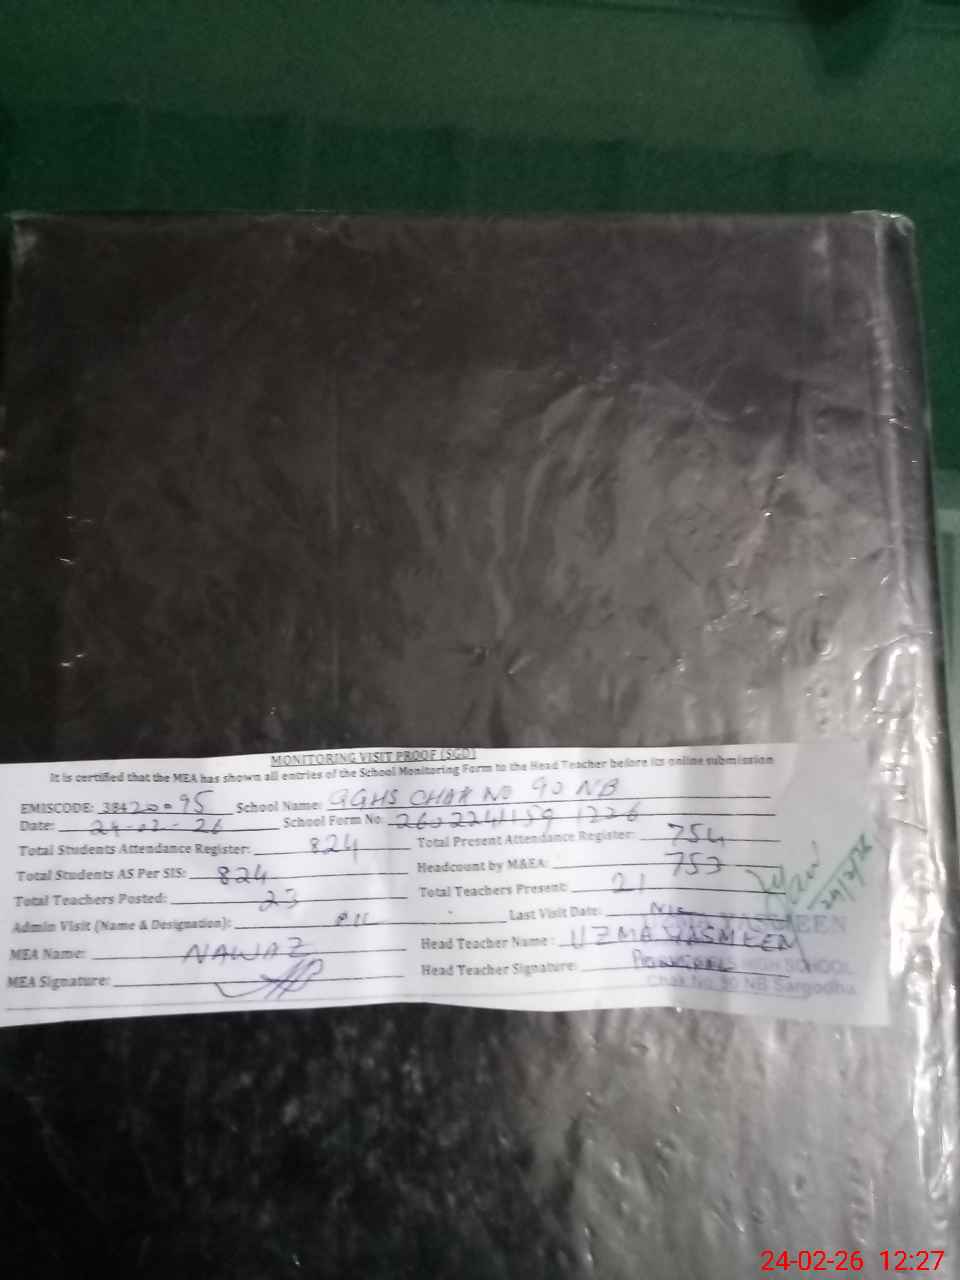 MONITORING VISIT PROOF (SGD)
It is certified that the MEA has shown all entries of the School Monitoring Form to the Head Teacher before its online submission
EMISCODE: 38420095 School Name: GGHS CHAK NO 90 NB
Date: 24-02-26 School Form No: 
Total Students Attendance Register: 824 Total Present Attendance Register: 754
Total Students AS Per SIS: 824 Headcount by M&EA: 753
Total Teachers Posted: 23 Total Teachers Present: 21
24/2/26
Admin Visit (Name & Designation): Last Visit Date:
MEA Name: NAWAZ Head Teacher Name: UZMA YASMEEN
MEA Signature: Head Teacher Signature:
HIGH SCHOOL
Chak No. 90 NB Sargodha
24-02-26 12:27